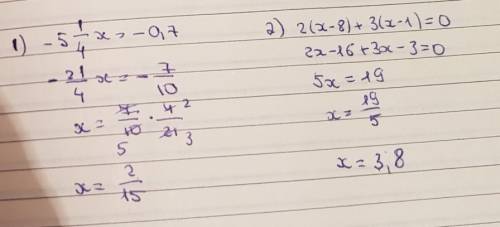 1) -5 1/4 x = -0,7
-21/4 x = -7/10
x = 7/10 · 4/21
5 2 3
x = 2/15
2) 2(x-8)+3(x-1)=0
2x-16+3x-3=0
5x=19
x=19/5
x=3,8